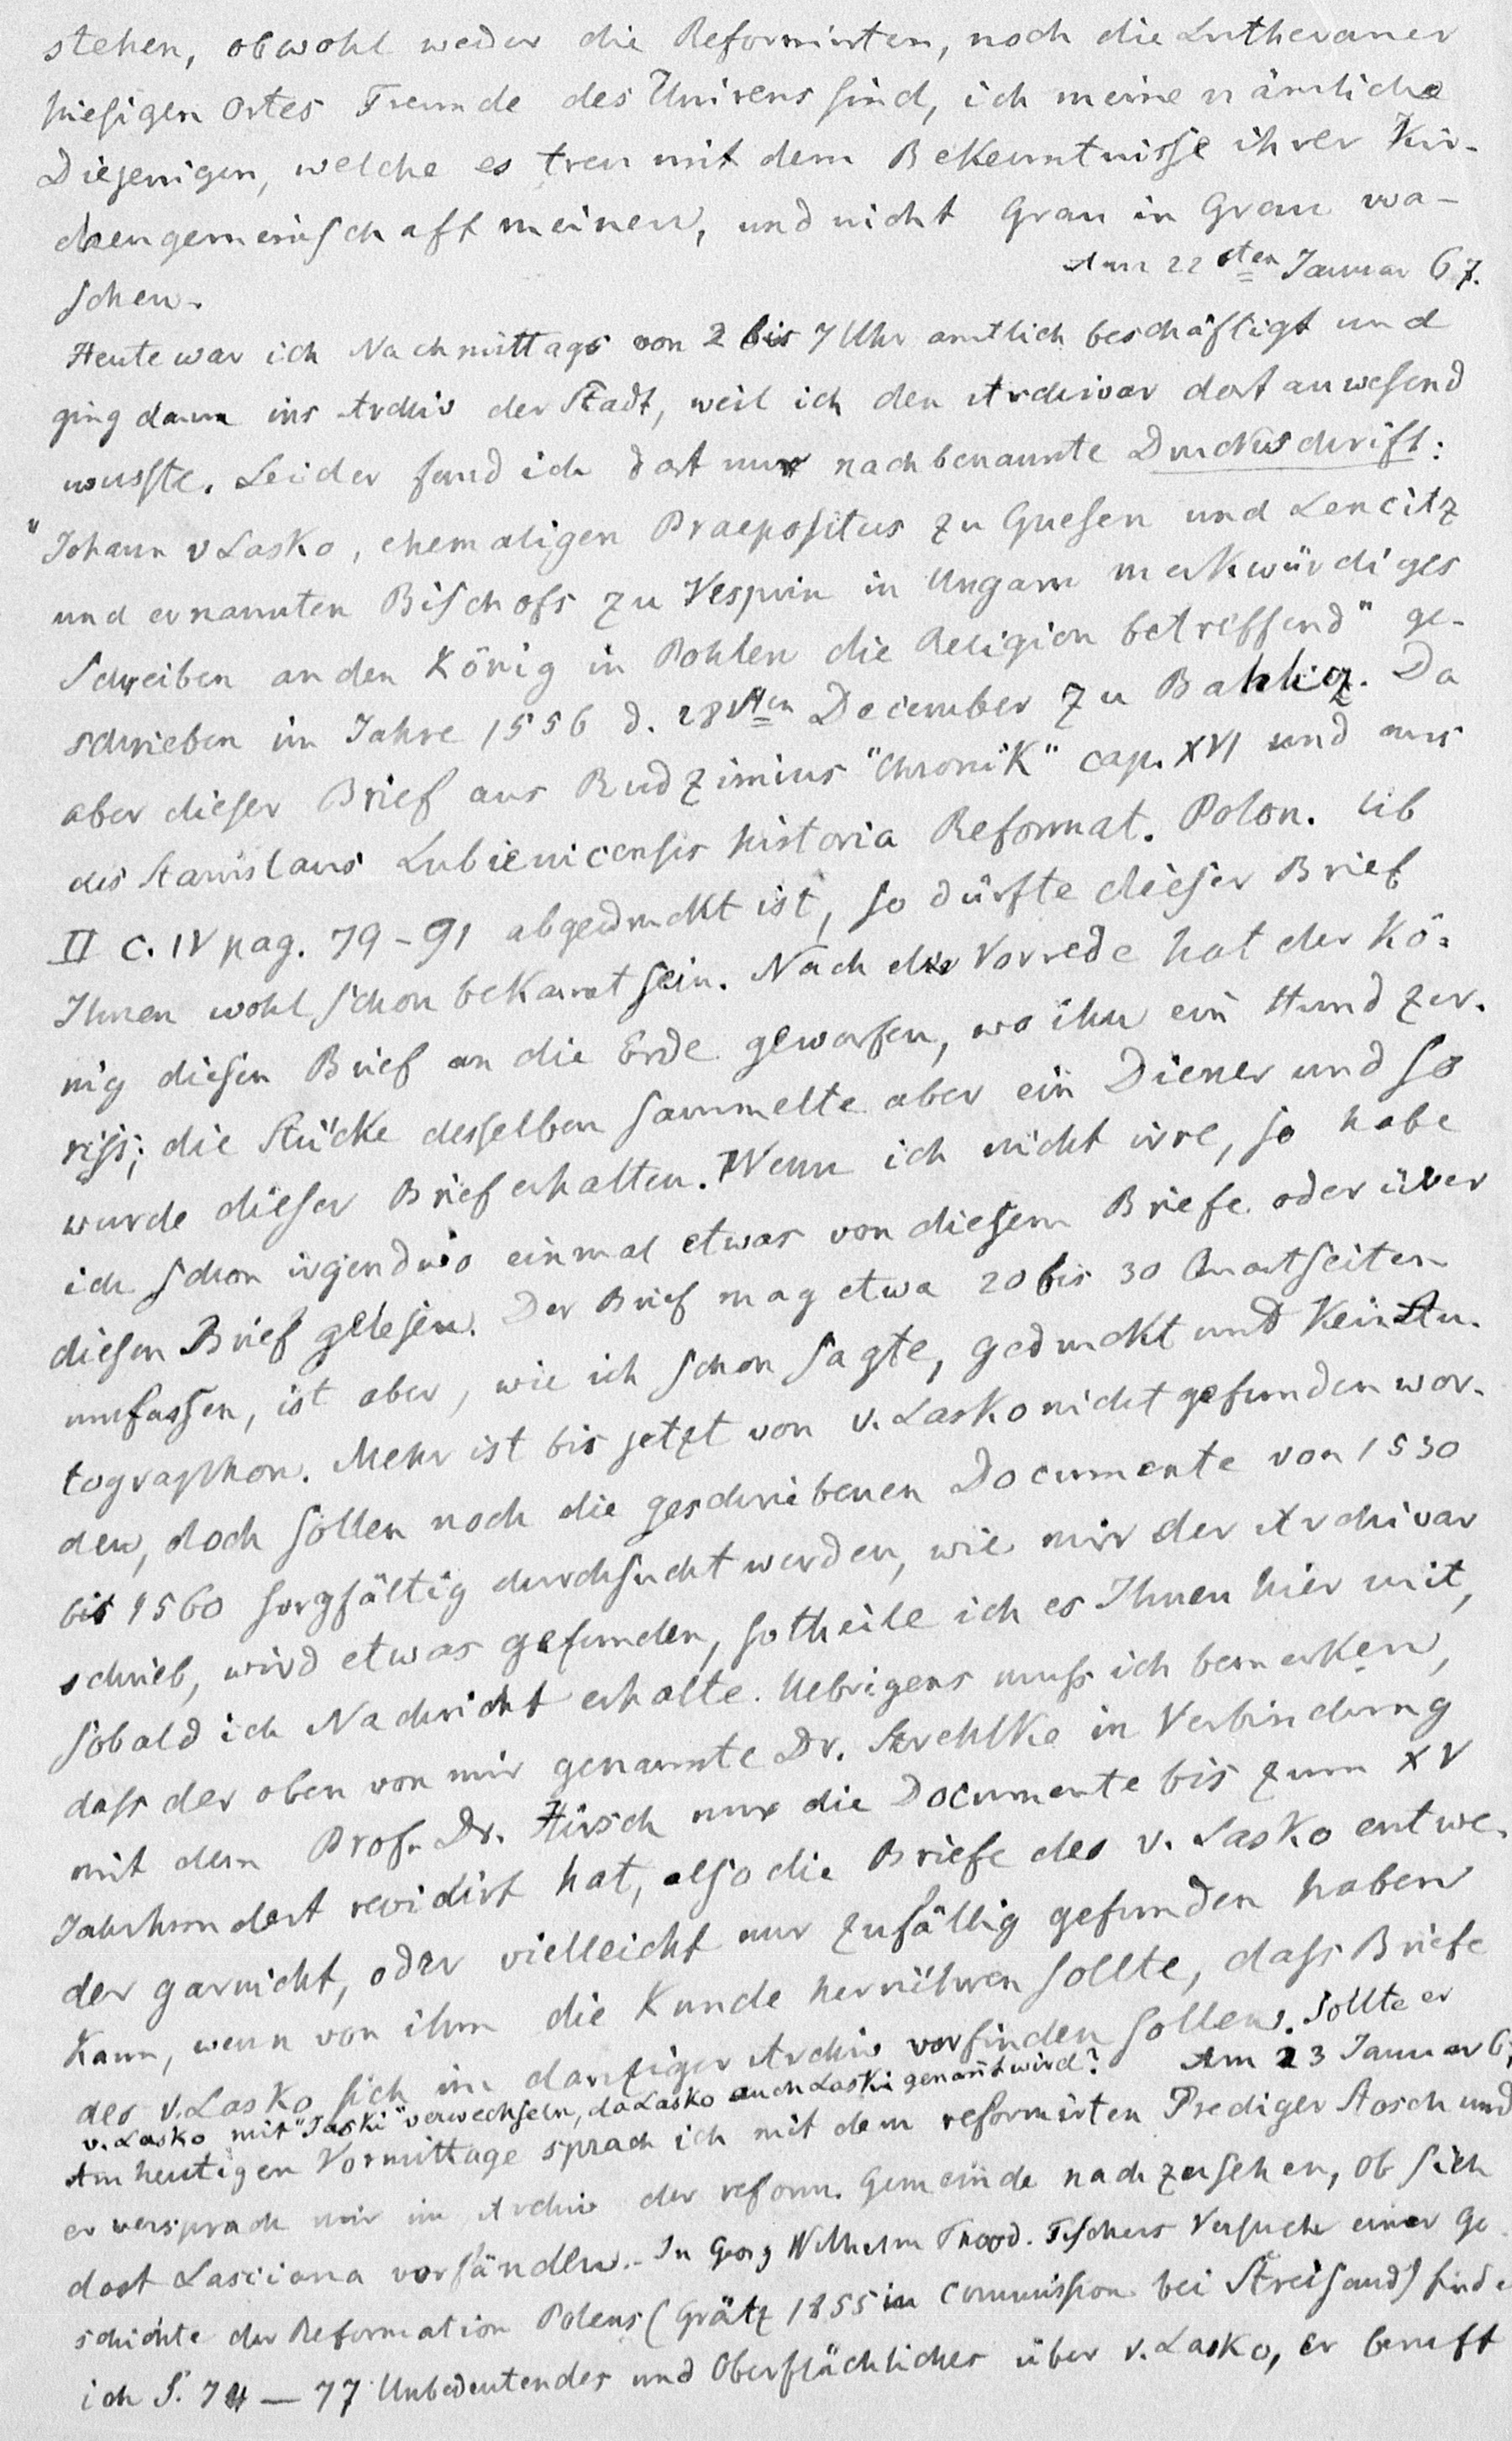 stehen, obwohl weder die Reformirten, noch die Lutheraner
hiesigen Ortes Freunde des Unirens sind, ich meine nämliche
Diejenigen, welche es treu mit dem Bekenntnisse ihrer Kir-
chengemeinschaft meinen, und nicht Grau in Grau wa-
schen.
Am 22sten Januar 67.
Heute war ich Nachmittags von 2 bis 7 Uhr amtlich beschäftigt und
ging dann ins Archiv der Stadt, weil ich den Archivar dort anwesend
wusste. Leider fand ich dort nur nachbenannte Druckschrift:
"Johann v Lasko, ehemaligen Praepositus zu Gnesen und Lencitz
und ernannten Bischofs zu Vesprin in Ungarn merkwürdiges
Schreiben an den König in Pohlen die Religion betreffend" ge-
schrieben im Jahre 1556 d. 28sten December zu Da
aber dieser Brief aus Budzinius "Chronik" cap. XVI und aus
des Stanislaus Lubieniciensis historia Reformat. Polon. lib
II c. IV pag. 79-91 abgedruckt ist, so dürfte dieser Brief
Ihnen wohl schon bekannt sein. Nach der Vorrede hat der Kö-
nig diesen Brief an die Erde geworfen, wo ihn ein Hund zer-
riss; die Stücke desselben sammelte aber ein Diener und so
wurde dieser Brief erhalten. Wenn ich nicht irre, so habe
ich schon irgendwo einmal etwas von diesem Briefe oder über
diesen Brief gelesen. Der Brief mag etwa 20 bis 30 Quartseiten
umfassen, ist aber, wie ich schon sagte, gedruckt und kein Au-
tographon. Mehr ist bis jetzt von v. Lasko nicht gefunden wor-
den, doch sollen noch die geschriebenen Documente von 1530
bis 1560 sorgfältig durchsucht werden, wie mir der Archivar
schrieb, wird etwas gefunden, so theile ich es Ihnen hier mit,
sobald ich Nachricht erhalte. Uebrigens muss ich bemerken,
dass der oben von mir genannte Dr. Strehlke in Verbindung
mit dem Prof. Dr. Hirsch nur die Documente bis zum XV
Jahrhundert revidirt hat, also die Briefe des v. Lasko entwe-
der garnicht, oder vielleicht nur zufällig gefunden haben
kann, wenn von ihm die Kunde herrühren sollte, dass Briefe
des v. Lasko sich im danziger Archiv vorfinden sollen. Sollte er
v. Lasko mit "Jaski" verwechseln, da Lasko auch Laski genannt wird?
Am 23 Januar 67
Am heutigen Vormittage sprach ich mit dem reformirten Prediger Stosch und
er versprach mir im Archiv der reform. Gemeinde nachzusehen, ob sich
dort Lasciana vorfänden.- In Georg Wilhelm Theod. Fischers Versuche einer Ge-
schichte der Reformation Polens (Grätz 1855 in Commission bei Streisand) finde
ich S. 74 — 77 Unbedeutendes und Oberflächliches über v. Lasko, er beruft